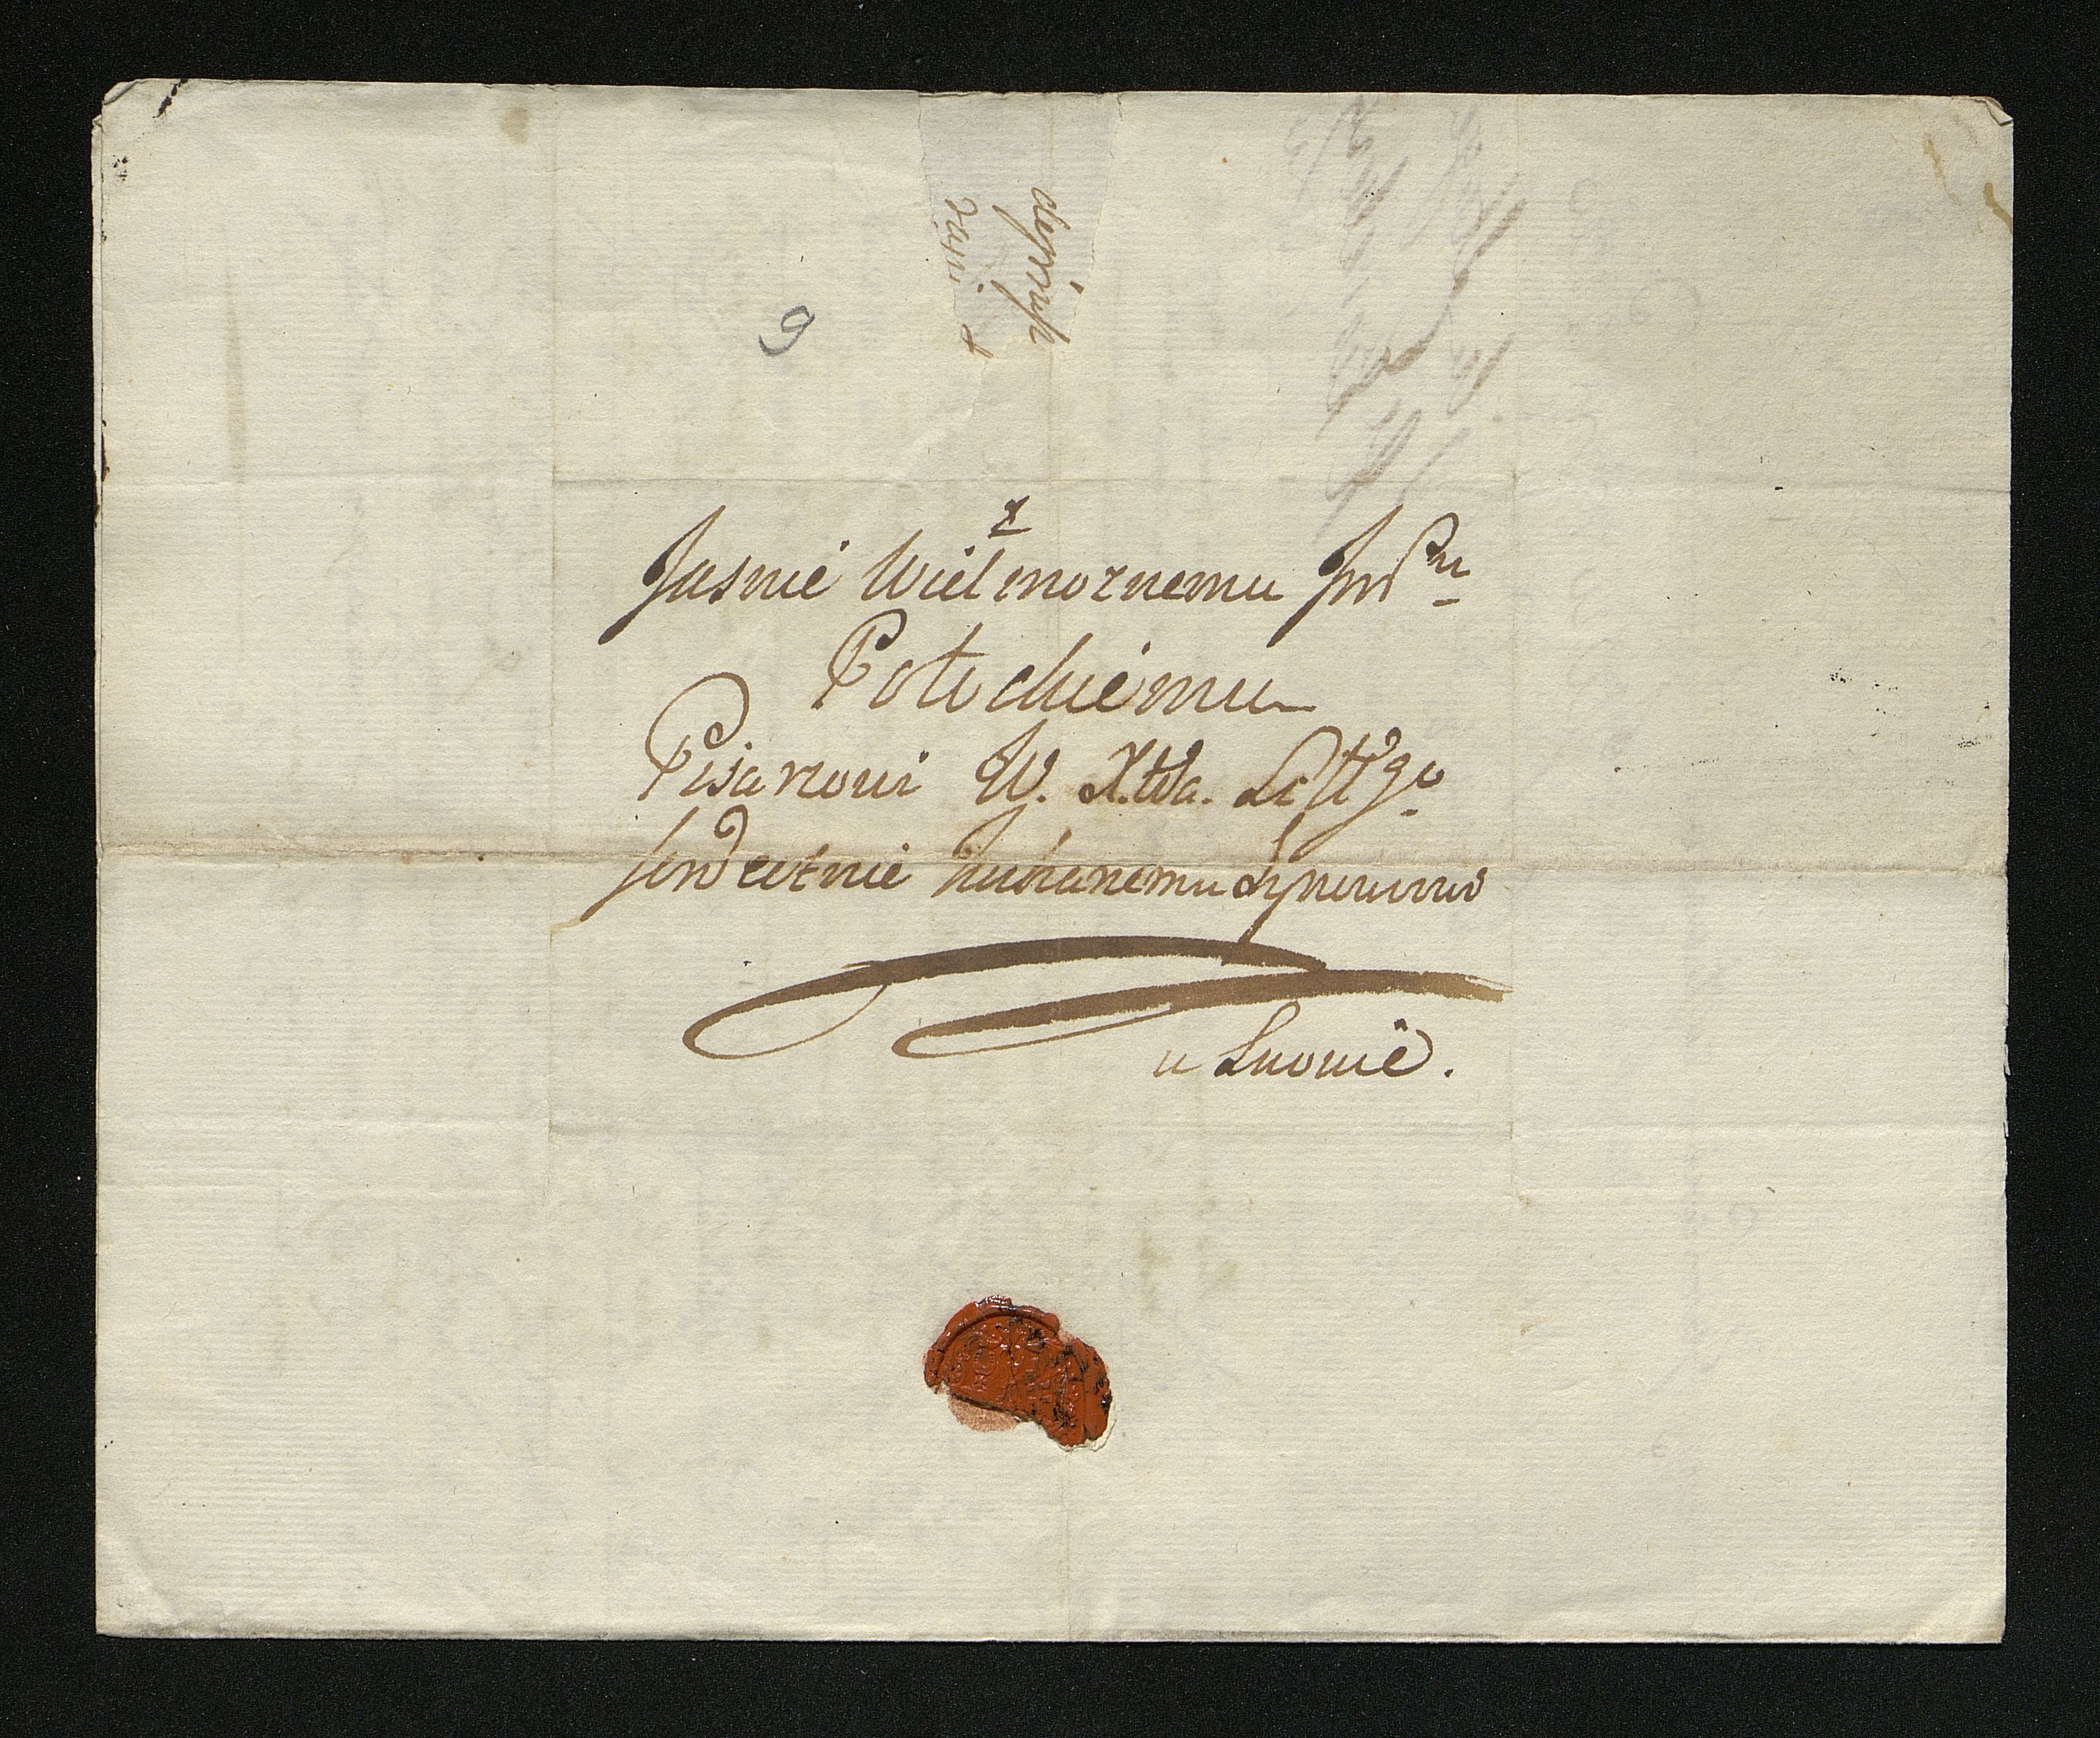 Jasnie Wielmoznemu Jm Pnu
Potockiemu
Pisarzowi W. X.twa. Litt°go
serdecznie kuhanemu Synowi
w Lwowie.
9